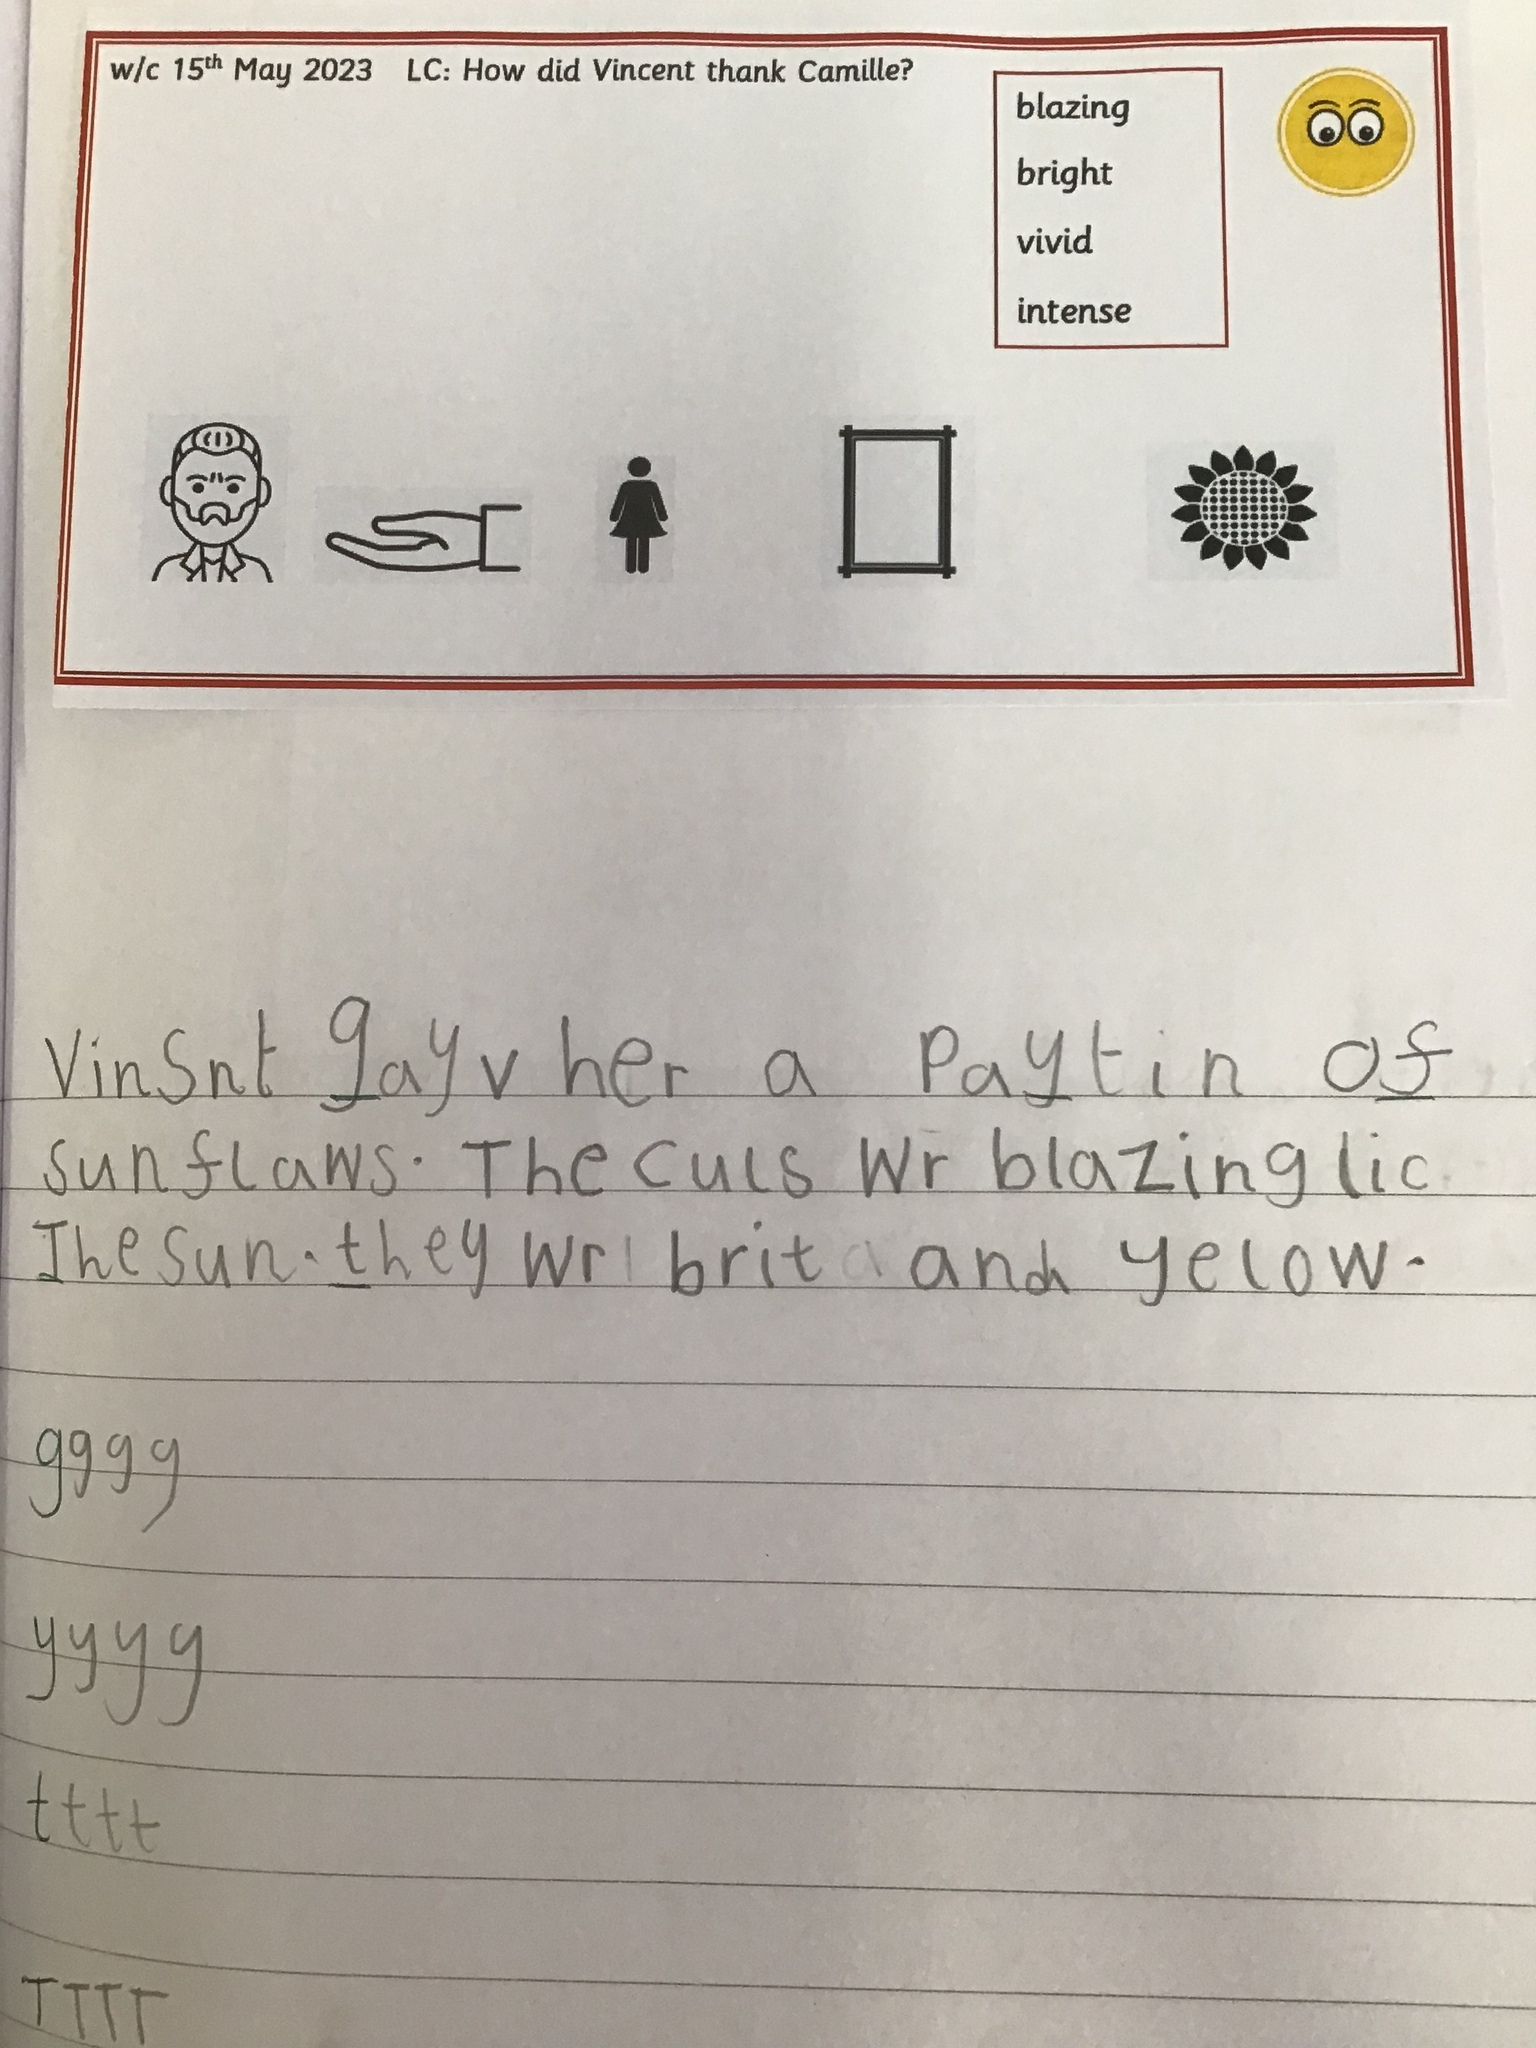 w/c 15th May 2023 LC: How did Vincent thank Camille?
blazing
bright
vivid
intense
VinSnt gayv her a Paytin of
sunflaws. The culs Wr blazing lic
The sun. they Wr brit and yelow.
gggg
yyyy
tttt
TTTT